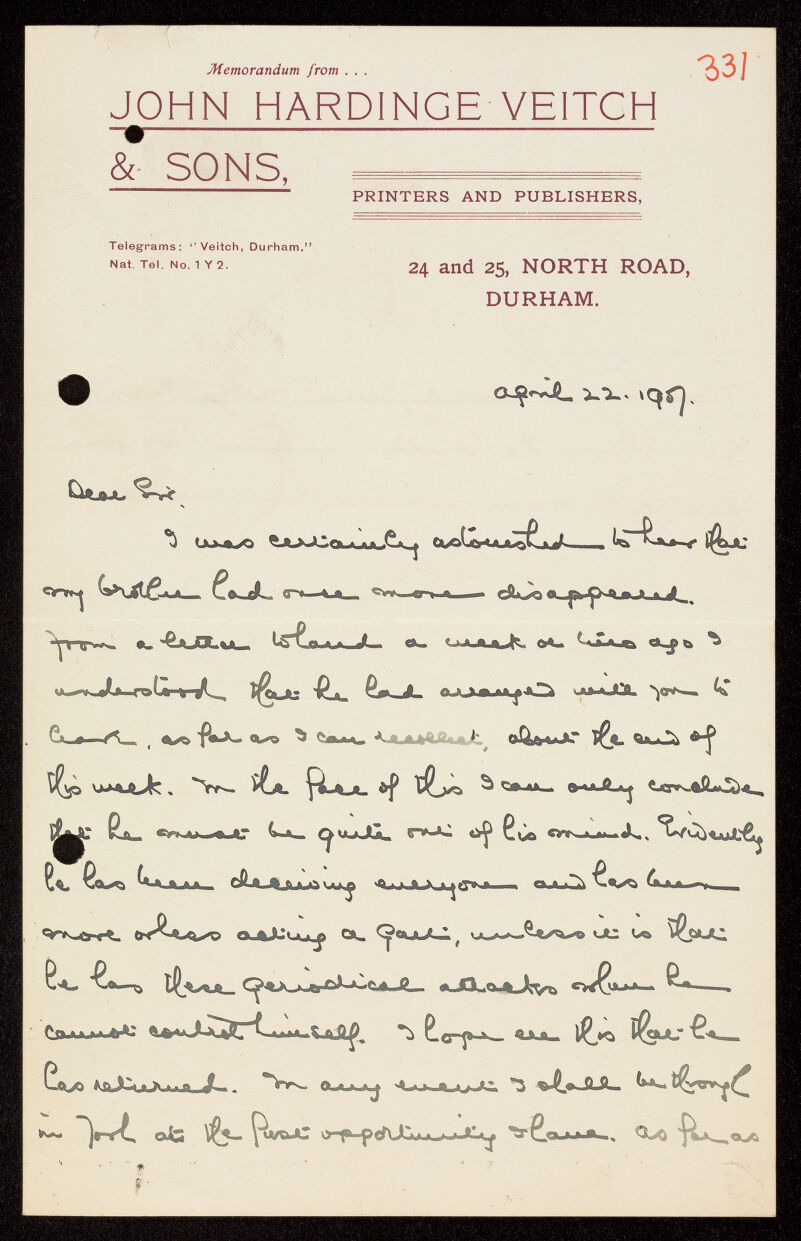 331
Memorandum from . . .
JOHN HARDINGE VEITCH
& SONS,
PRINTERS AND PUBLISHERS,
Telegrams: "Veitch, Durham."
Nat. Tel. No. 1 Y 2.
24 and 25, NORTH ROAD,
DURHAM.
April 22. 1907.
Dear Sir,
I was certainly astonished to hear that
my brother had once more disappeared.
From a letter to hand a week or two ago I
understood that he had arranged with you to
leave, as far as I can recollect, about the end of
this week. In the face of this I can only conclude
that he must be quite out of his mind. Evidently
he has been deceiving everyone and has been
more or less acting a part, unless it is that
he has these periodical attacks when he
cannot control himself. I hope ere this that he
has returned. In any event I shall be through
in York at the first opportunity I have. As far as